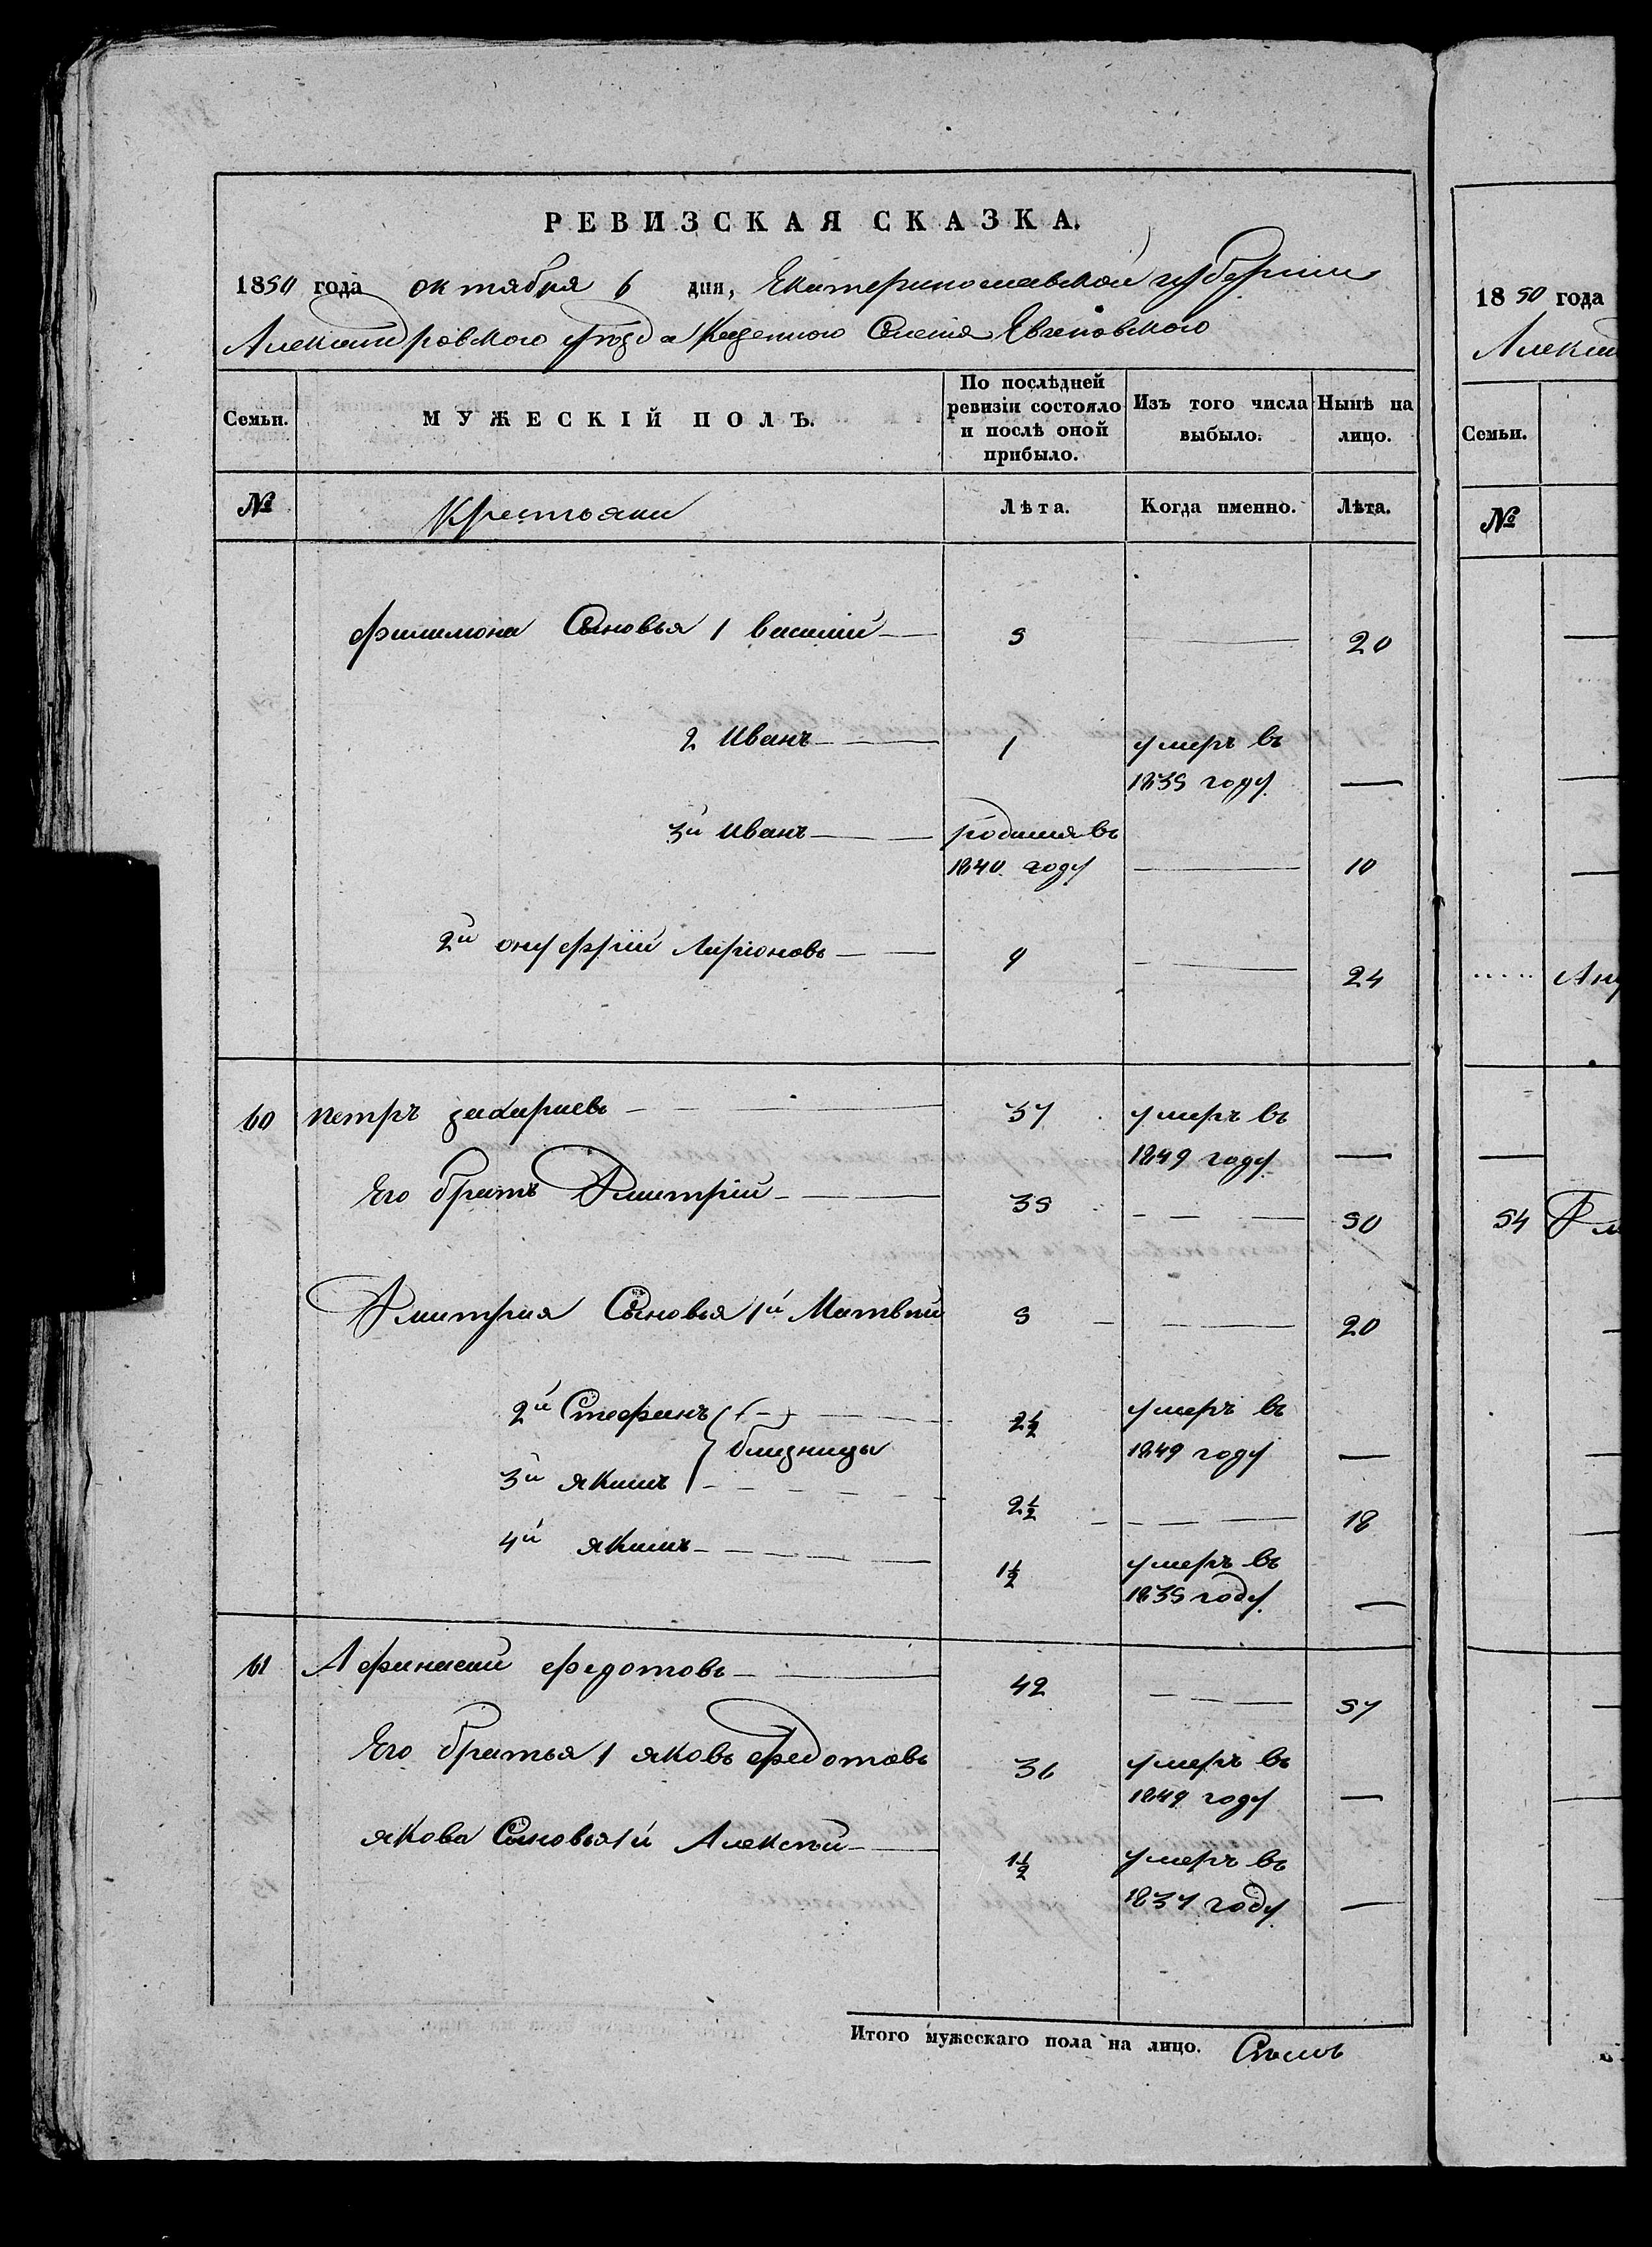 РЕВИЗСКАЯ СКАЗКА.
1850 года октября 6 дня, Екатеринославской губернии
Александровского уѣзда Казенного Селения
Семьи. МУЖЕСКІЙ ПОЛЪ. По послѣдней ревизіи состояло и послѣ оной прибыло. Изъ того числа выбыло. Нынѣ на лицо.
№ Крестьяни Лѣта. Когда именно. Лѣта.
Филимона Сыновья 1 василий 5 20
2 Иванъ 1 умеръ въ
1835 году
3й Иванъ родился въ
1840 году 10
2й онуфрій Ларіоновъ 9 24
60 петръ захариевъ 37 умеръ въ
1849 году
Его братъ Дмитрій 35 50
Дмитрия Сыновья 1й Матвѣй 5 20
2й Стефанъ 2½ умеръ въ
близницы 1849 году
3й якимъ 2½ 18
4й якимъ 1½ умеръ въ
1835 году
61 Афанасий федотовъ 42 57
Его братья 1 яковъ федотовъ 36 умеръ въ
1849 году
якова Сыновья 1й Алексѣй 1½ умеръ въ
1837 году
Итого мужескаго пола на лицо. Сѣмъ
1850 года
Семьи.
№
54